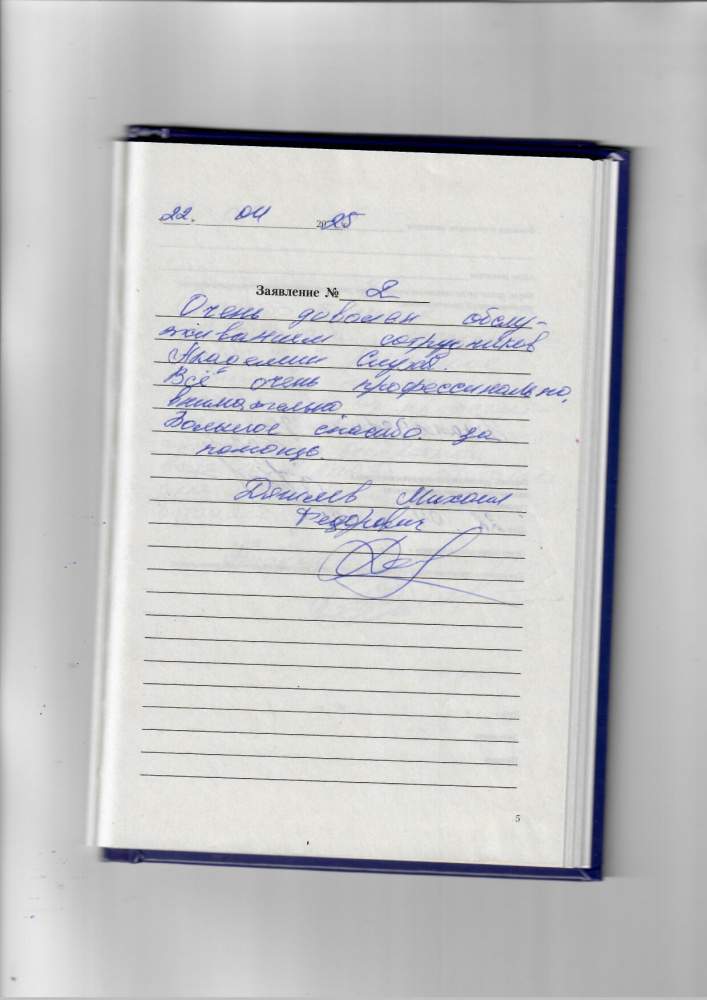 22. 04 2025
Заявление № 2
Очень доволен обслу-
живанием сотрудников
Академии Слуха.
Всё очень профессионально,
внимательно.
Большое спасибо за
помощь.
Михаил
Федорович
5